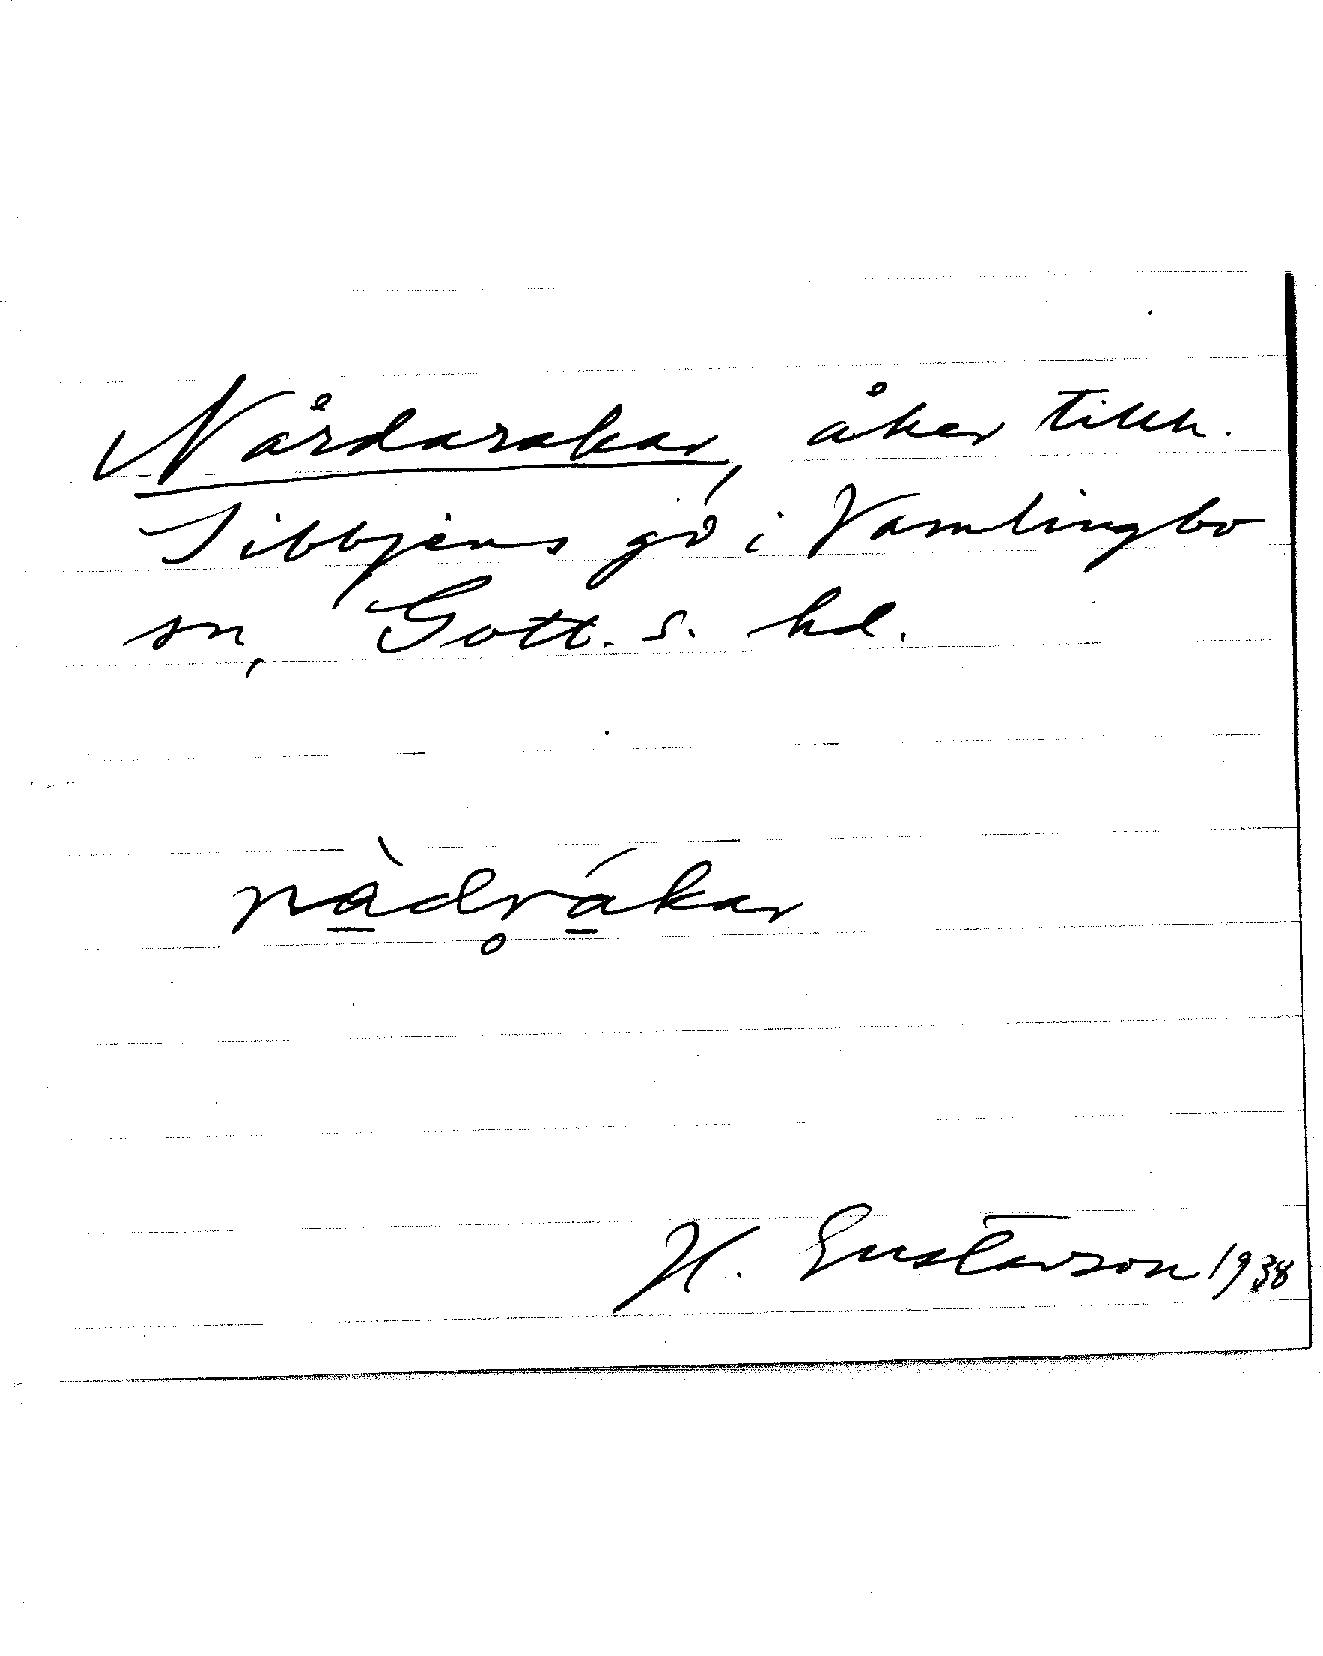 Nårdarakar, åker tillh.
Sibbjens gd i Vamlingbo
sn, Gotl. s. hd.
nàdr̥ákar
H. Gustavson 1938